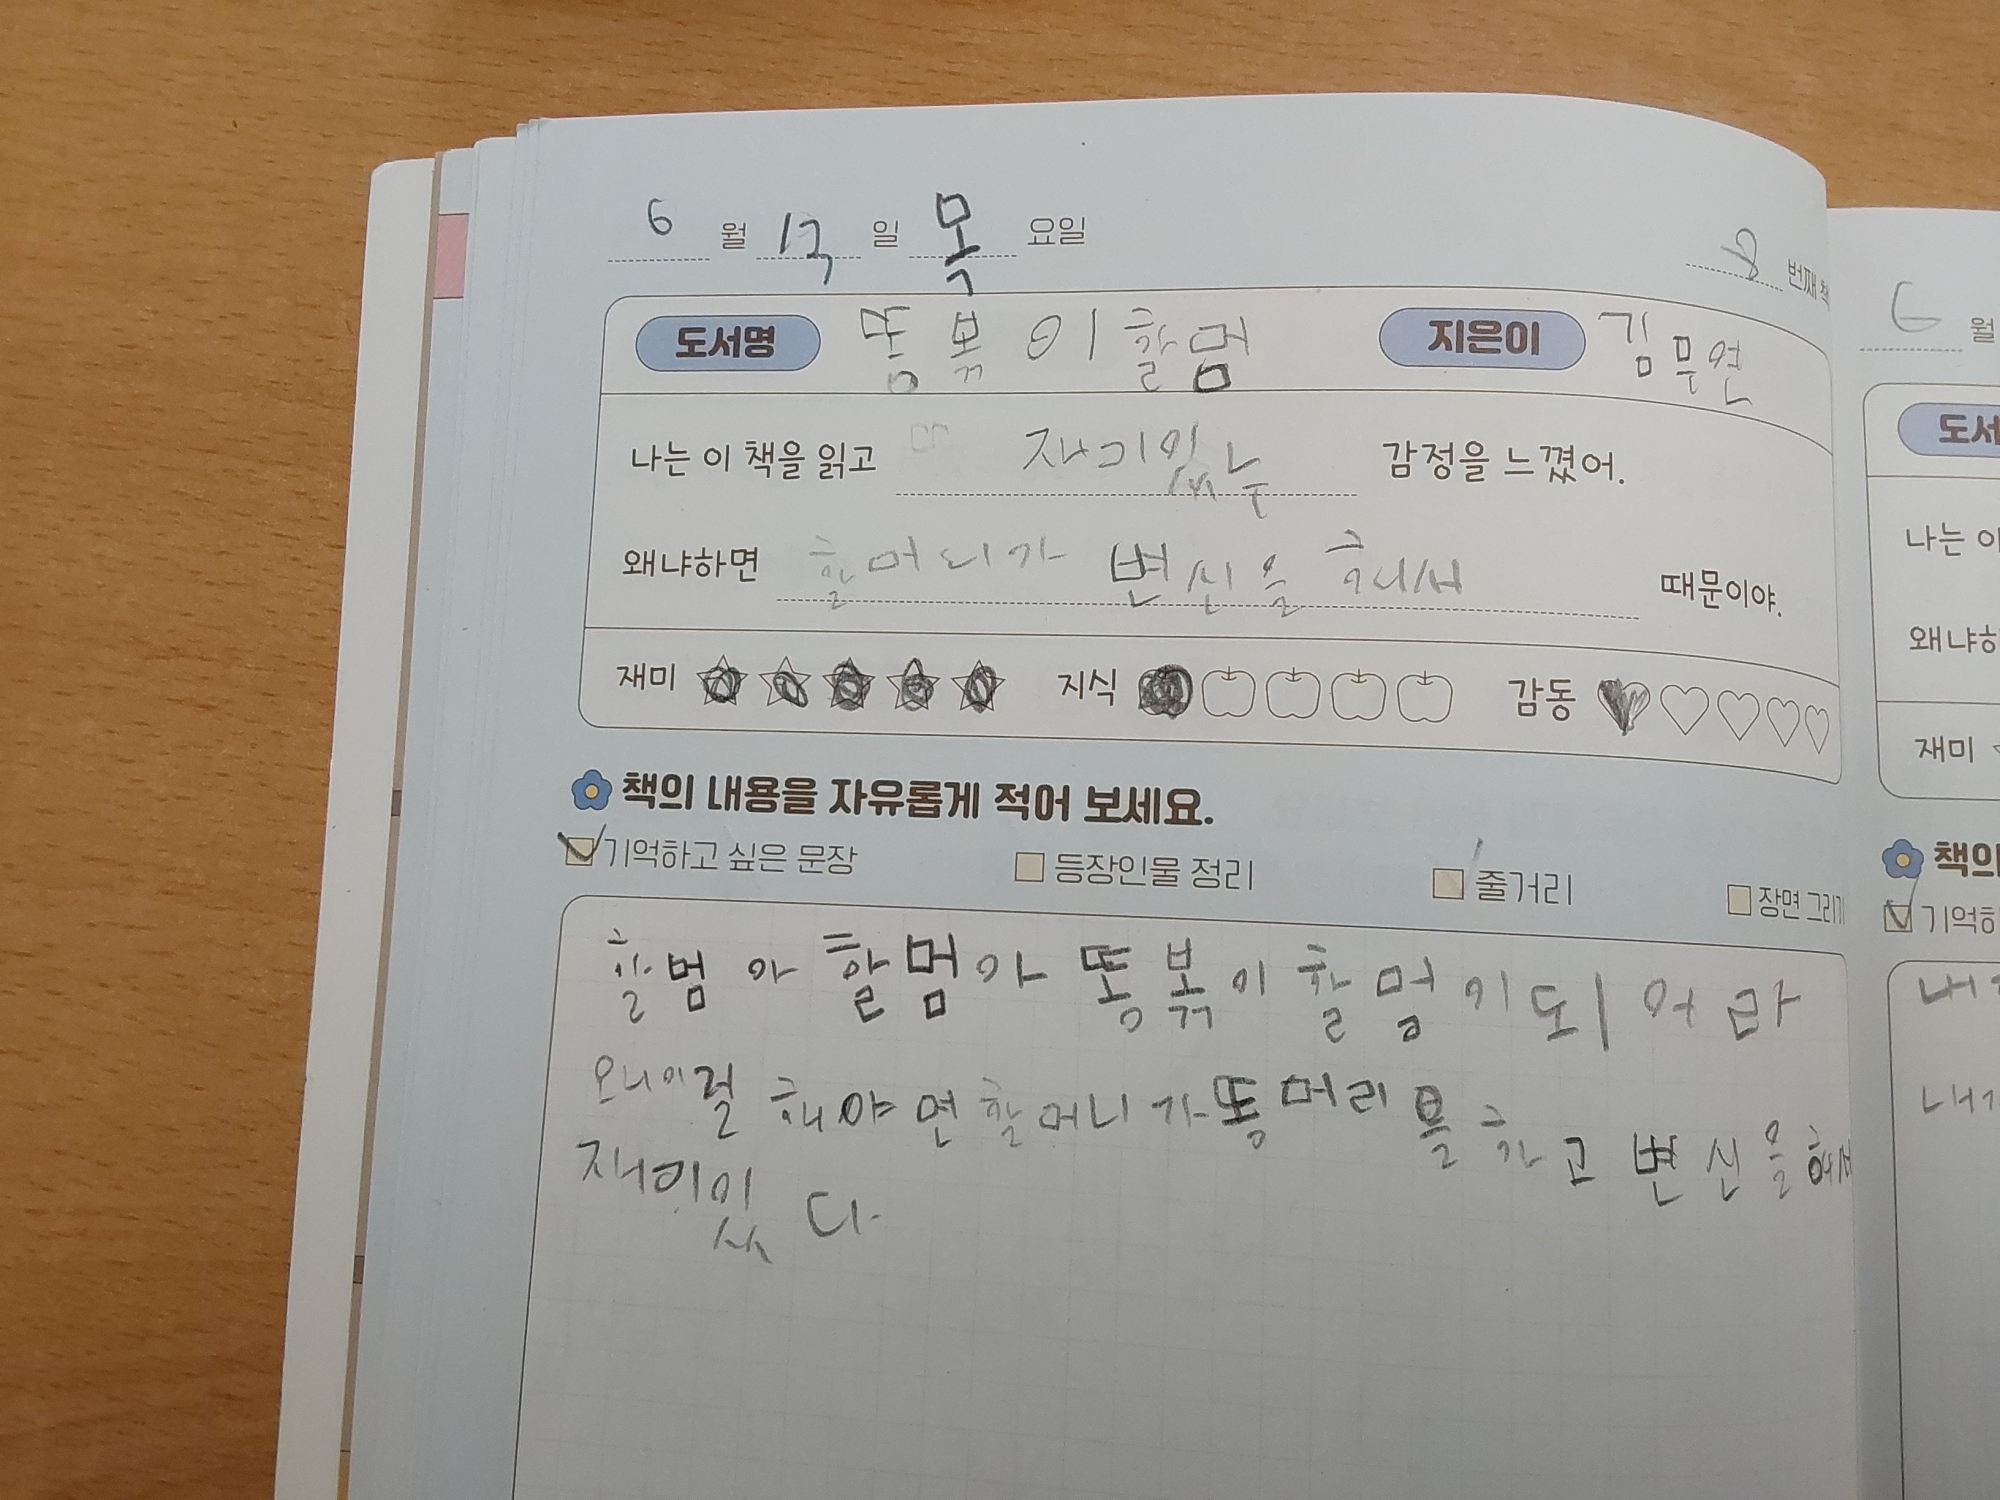 6 월 12 일 목 요일
8 번째 책
도서명 똥볶이 할멈 지은이 김무연
나는 이 책을 읽고 재미있는 감정을 느꼈어.
왜냐하면 할머니가 변신을 해서 때문이야.
재미 지식 감동
책의 내용을 자유롭게 적어 보세요.
기억하고 싶은 문장 등장인물 정리 줄거리 장면 그리기
할범아 할멈아 똥볶이 할멈이 되어라
왜이럴 해야면 할머니가 똥머리를 하고 변신을 해서
재미있다.
6 월
도서
나는 이
왜냐하
재미
책의
기억하
내가
내가